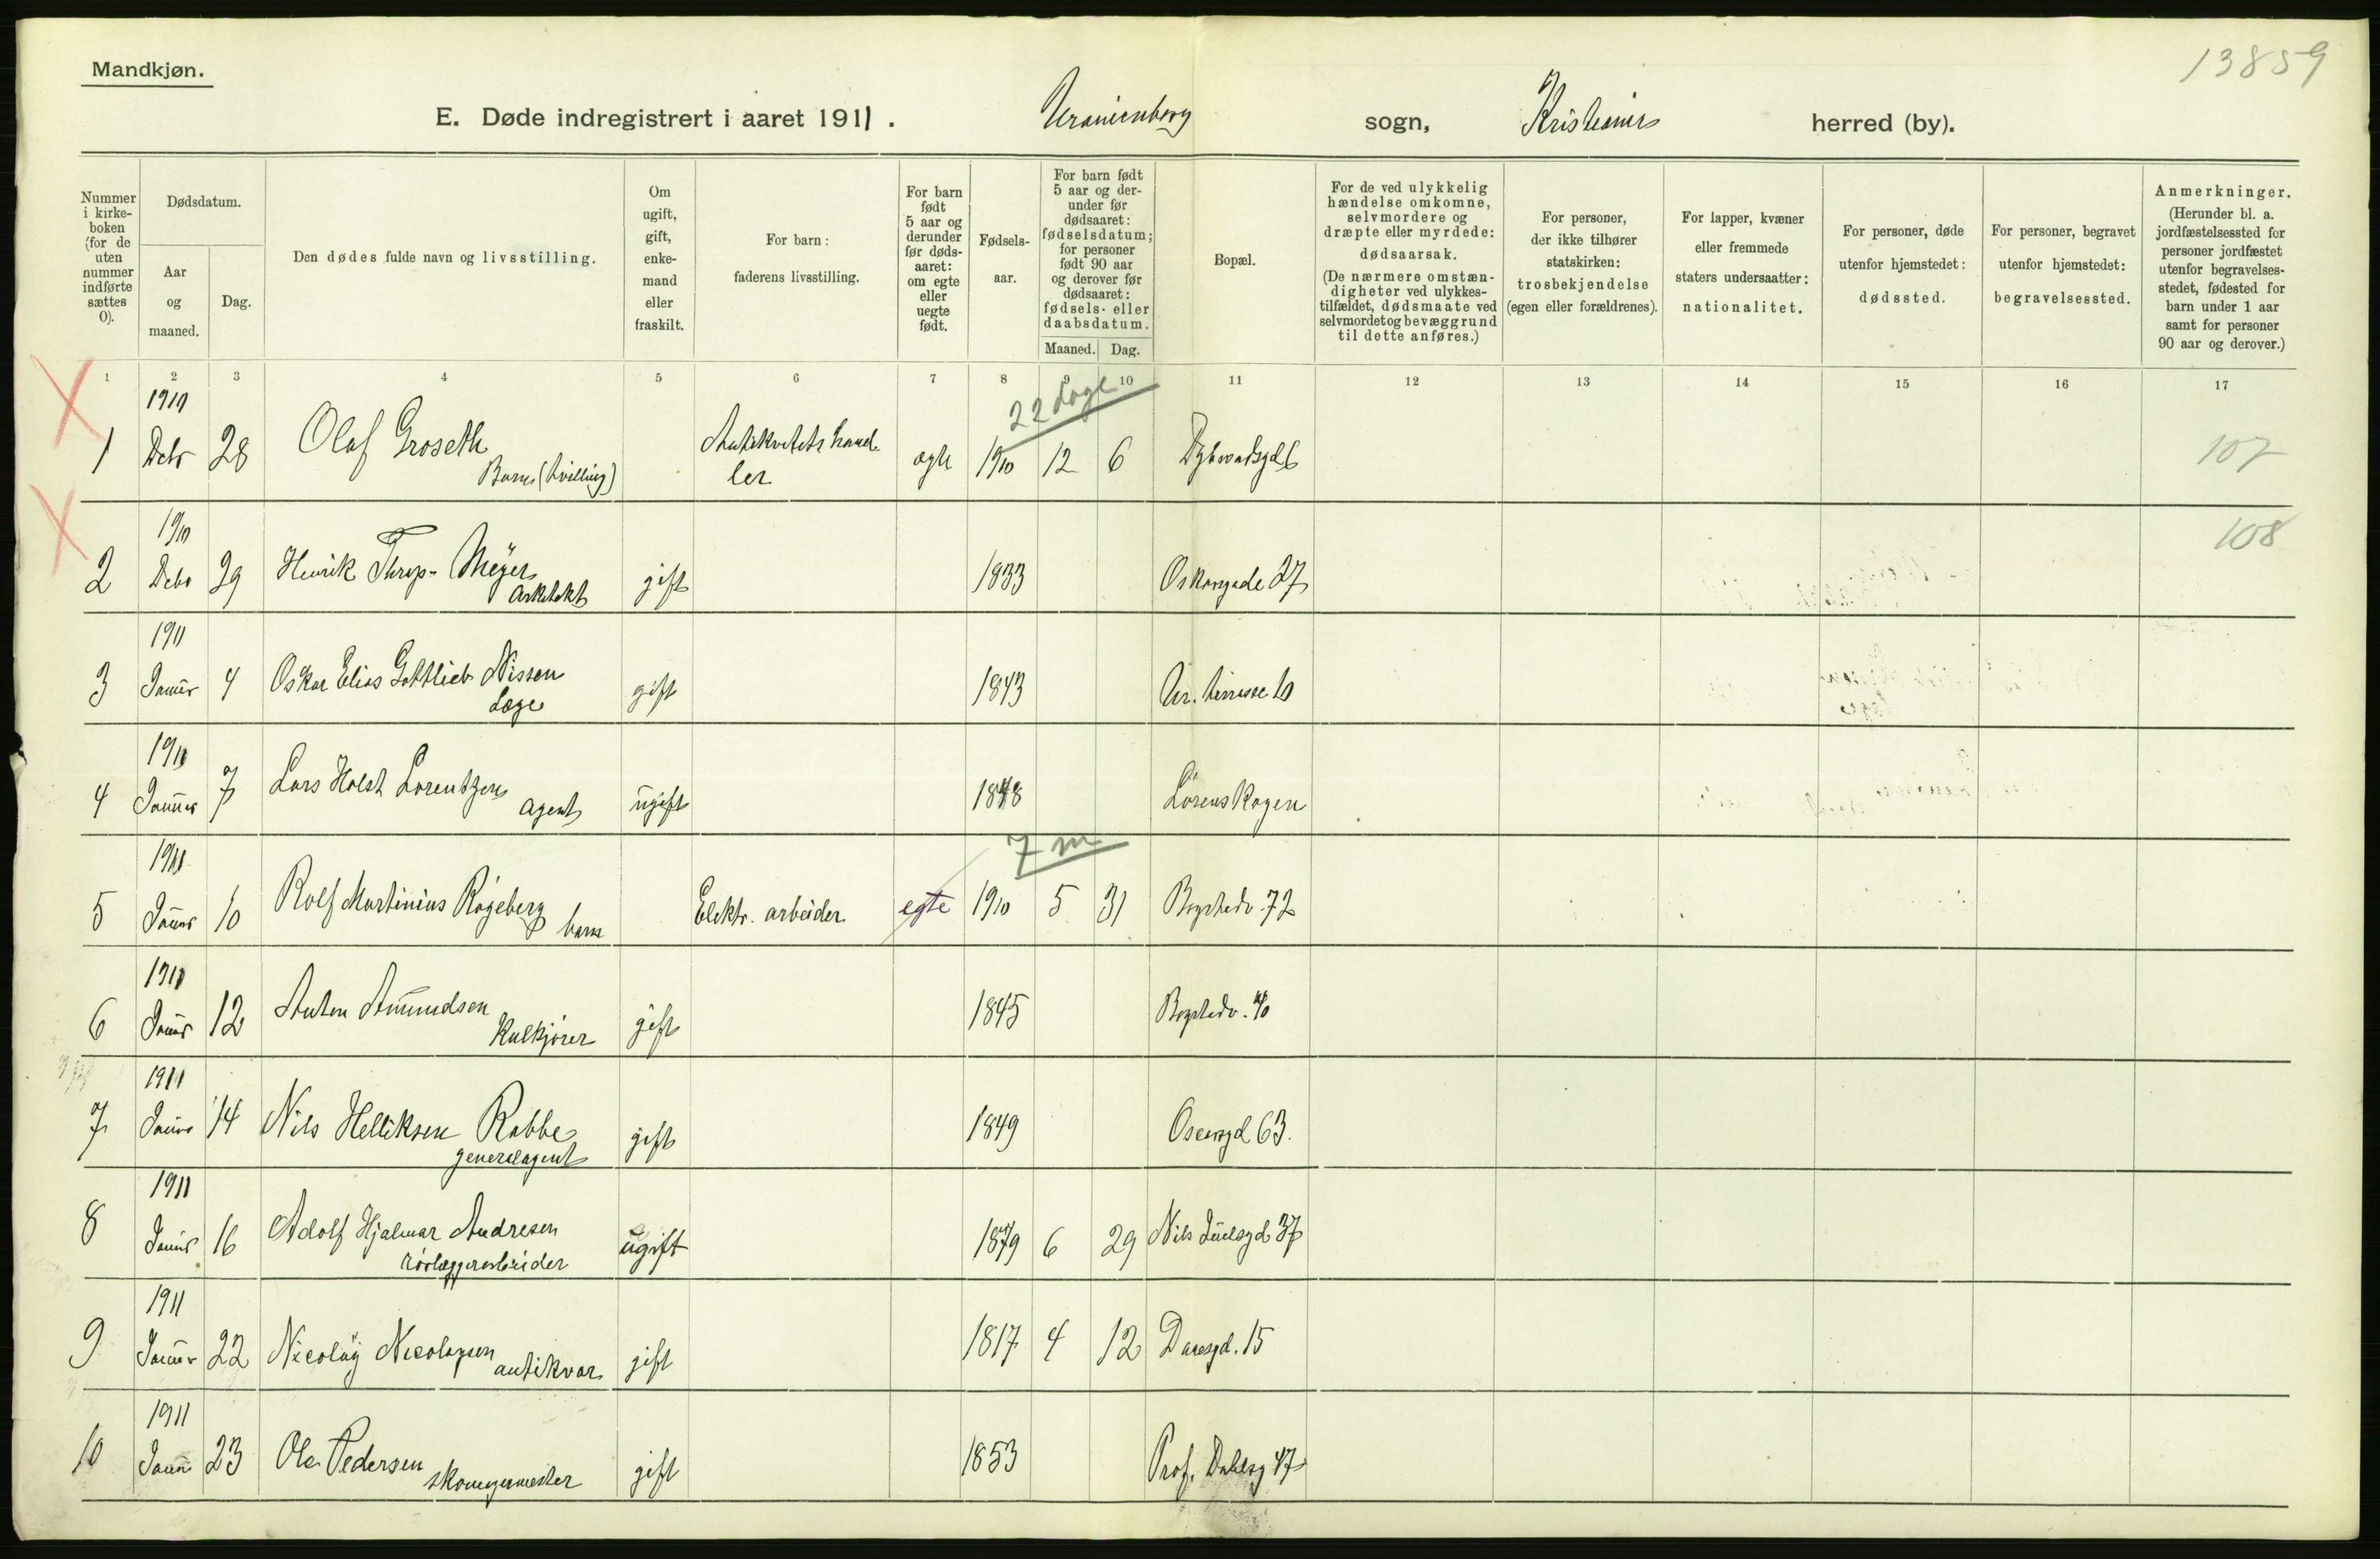 Mandkjøn.
13859
E. Døde indregistrert i aaret 1911. Uranienborg sogn, Kristiania herred (by).
Nummer i kirke-boken (for de uten nummer indførte sættes 0).
Dødsdatum.
Aar og maaned.
Dag.
Den dødes fulde navn og livsstilling.
Om ugift, gift, enke-mand eller fraskilt.
For barn: faderens livsstilling.
For barn født 5 aar og derunder før døds-aaret: om egte eller uegte født.
Fødsels-aar.
For barn født 5 aar og der-under før dødsaaret: fødselsdatum; for personer født 90 aar og derover før dødsaaret: fødsels- eller daabsdatum.
Maaned. Dag.
Bopæl.
For de ved ulykkelig hændelse omkomne, selvmordere og dræpte eller myrdede: dødsaarsak. (De nærmere omstæn-digheter ved ulykkes-tilfældet, dødsmaate ved selvmordet og bevæggrund til dette anføres.)
For personer, der ikke tilhører statskirken: trosbekjendelse (egen eller forældrenes).
For lapper, kvæner eller fremmede staters undersaatter: nationalitet.
For personer, døde utenfor hjemstedet: dødssted.
For personer, begravet utenfor hjemstedet: begravelsessted.
Anmerkninger. (Herunder bl. a. jordfæstelsessted for personer jordfæstet utenfor begravelses-stedet, fødested for barn under 1 aar samt for personer 90 aar og derover.)
1 2 3 4 5 6 7 8 9 10 11 12 13 14 15 16 17
22 dage
1910
1 Debr 28 Olaf Groseth Antikvitetshand- ægte 1910 12 6 Dybwadsgd 6 107
Barn (tvilling) ler
1910 108
2 Debr 29 Henrik Thrap-Meyer gift 1833 Oskarsgade 27
Arkitekt
1911
3 Januar 4 Oskar Elias Gottlieb Nissen gift 1843 Ur. terrasse 10
Læge
1911
4 Januar 7 Lars Holst Lorentzen ugift 1848 Lörenskogen
Agent
7 m
1911
5 Januar 10 Rolf Martinius Rögeberg Elektr. arbeider egte 1910 5 31 Bogstadv. 72
barn
1911
6 Januar 12 Anton Amundsen gift 1845 Bogstadv. 40
Kulkjörer
1911
7 Januar 14 Nils Helliksen Rabbe gift 1849 Oscarsgd 63.
generalagent
1911
8 Januar 16 Adolf Hjalmar Andresen ugift 1879 6 29 Nils Juelsgd 37
rörlæggerarbeider
1911
9 Januar 22 Nicolay Nicolaysen gift 1817 4 12 Daasgd. 15
antikvar
1911
10 Januar 23 Ole Pedersen gift 1853 Prof. Dahlsg 47
skomagermester